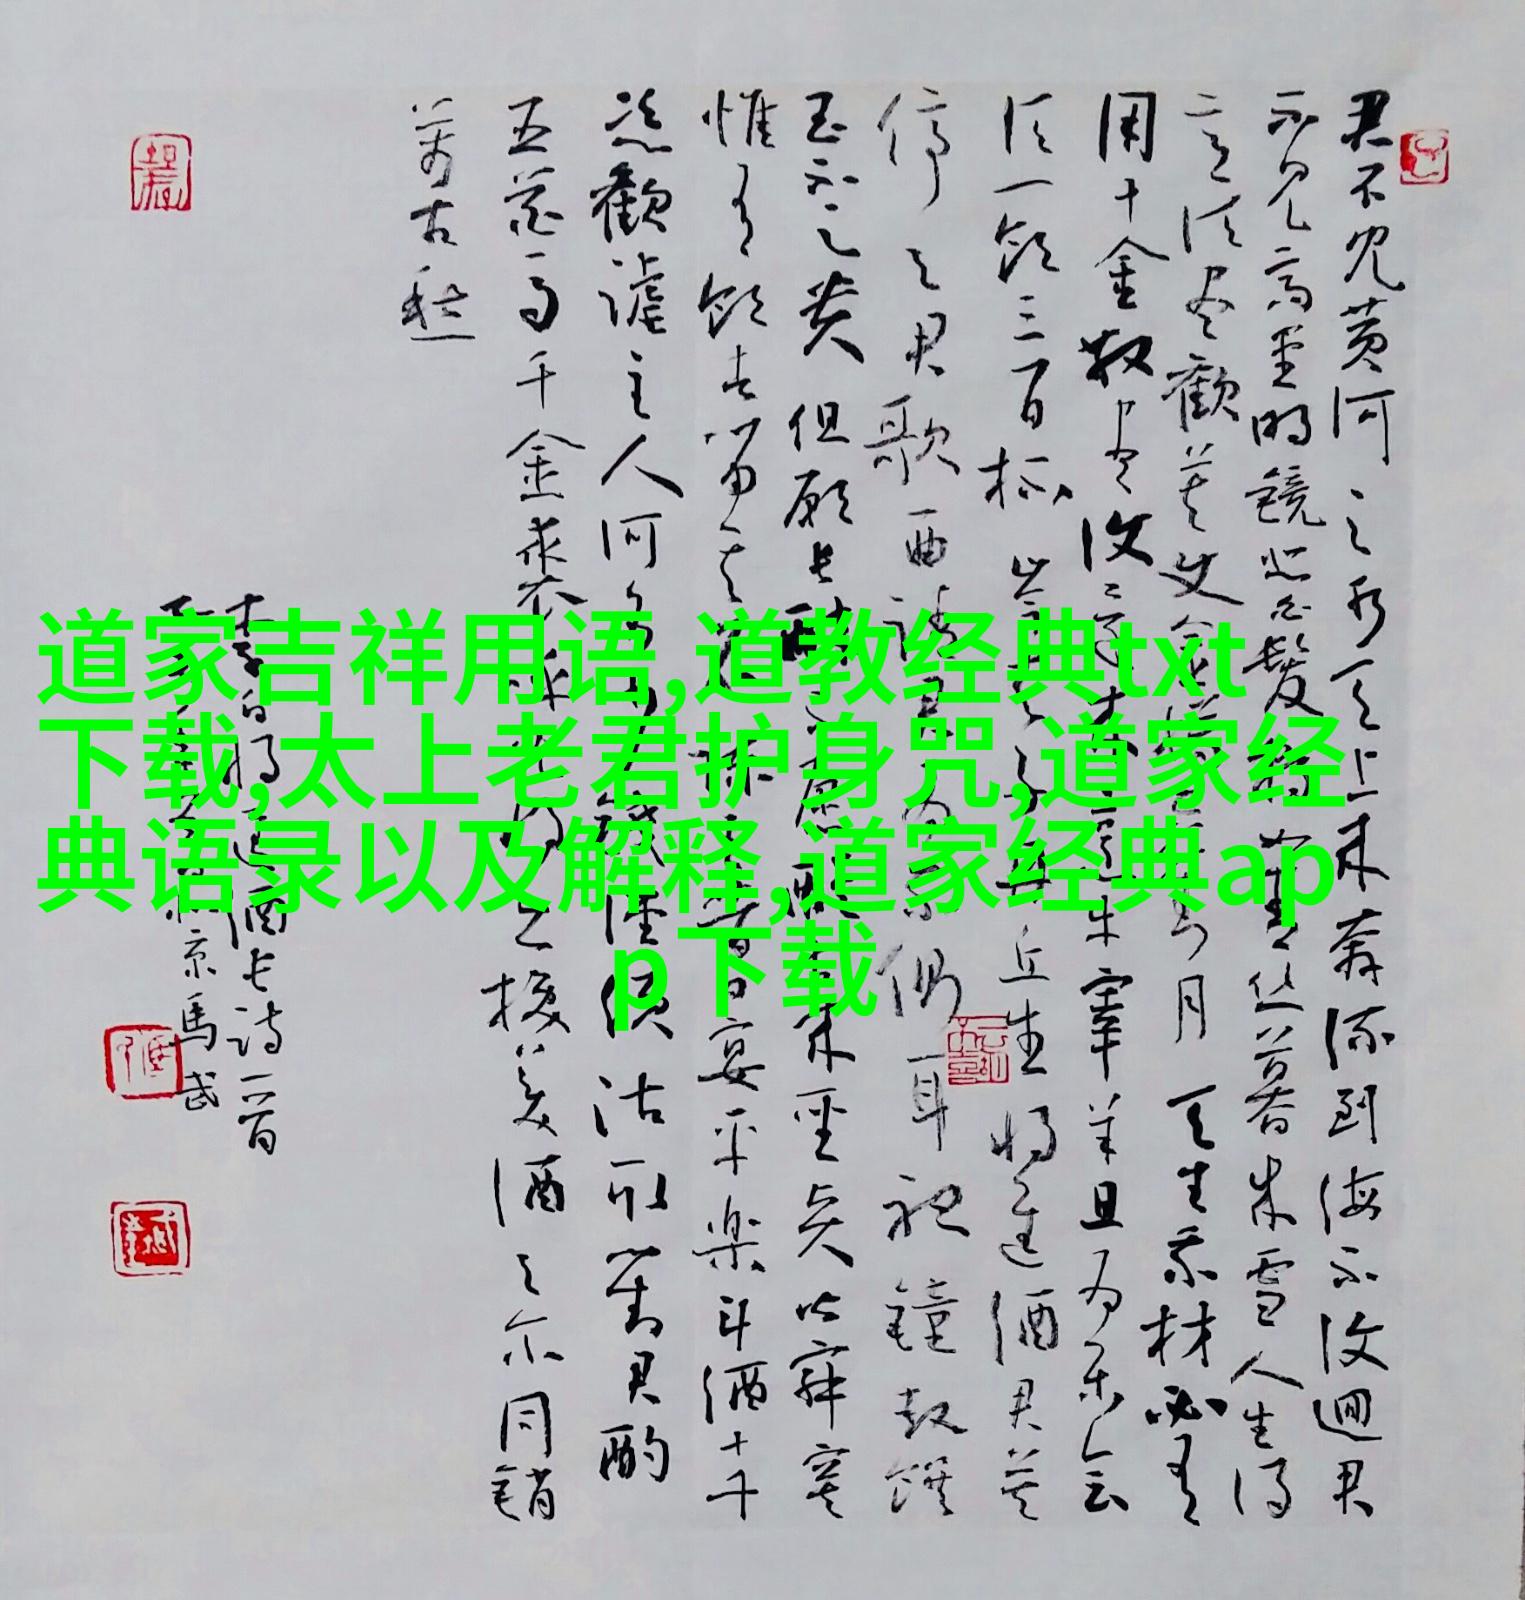 君不見黄河之水天上来奔流到海不復迴君
不見高堂明镜悲白髮朝如青丝暮成雪人生得
意须尽歡莫使金樽空对月天生我材必有
用千金散尽復还来烹牛宰羊且为乐会
须一饮三百杯岑夫子丹丘生将進酒君莫
停与君歌一曲请君为耳聽鐘鼓馔
玉不足贵但愿长醉不愿醒古来圣贤皆寂寞
惟有饮者留其名陈王昔时宴平樂斗酒十千
恣歡謔主人何为言少钱径须沽取对君酌
五花马千金裘呼儿将出换美酒与尔同销
万古愁
李白将进酒长诗一首
京馬武
道家吉祥用语,道教经典txt
下载,太上老君护身咒,道家经
典语录以及解释,道家经典ap
p下载